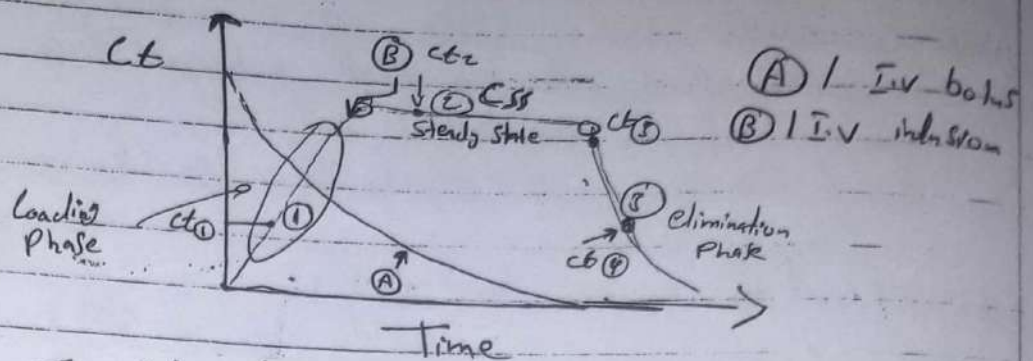 Ct
Ⓑ Ct₂
② Css
Steady State
Ct③
Ⓐ / I.v bolus
Ⓑ / I.v infusion
Loading
Phase
Ct①
①
Ⓐ
③
elimination
Phase
Ct④
Time